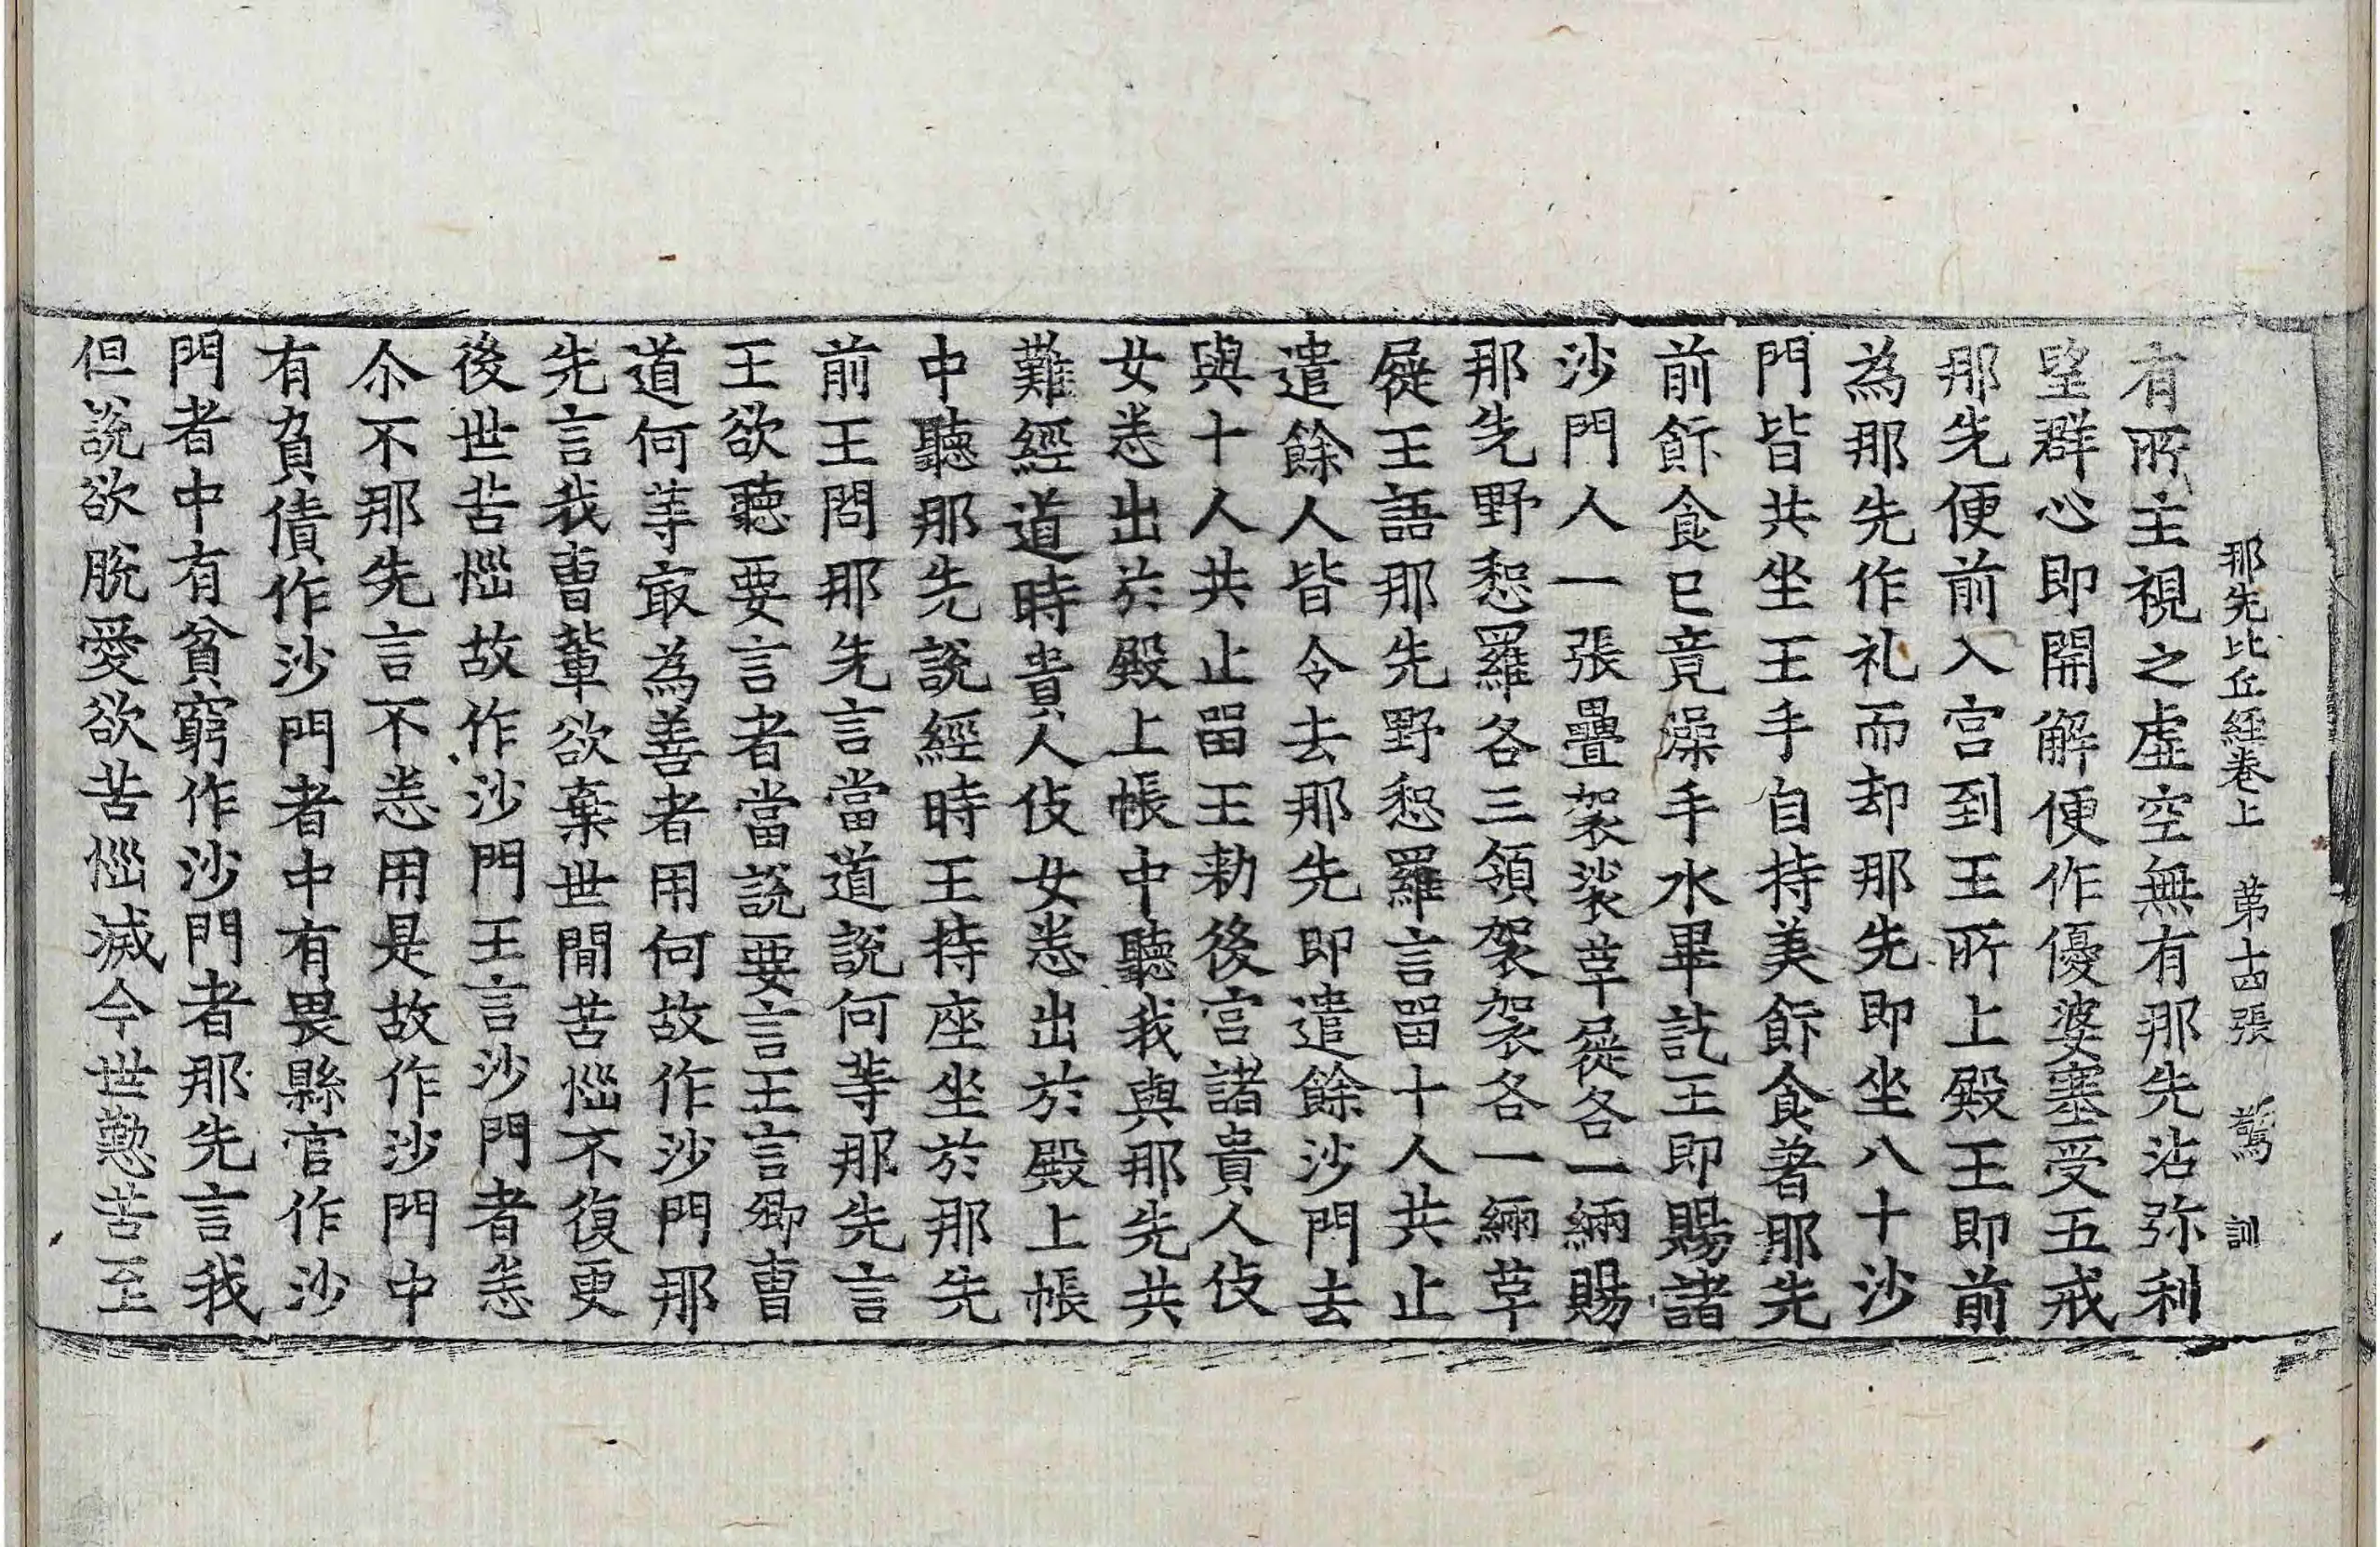 那先比丘經卷上　第十四張　驚　訓
有所主視之虛空無有那先沾弥利
望群心即開解便作優婆塞受五戒
那先便前入宫到王所上殿王即前
為那先作礼而却那先即坐八十沙
門皆共坐王手自持美飰食著那先
前飰食已竟澡手水畢訖王即賜諸
沙門人一張疊袈裟草屣各一緉賜
那先野惒羅各三領袈裟各一緉草
屣王語那先野惒羅言留十人共止
遣餘人皆令去那先即遣餘沙門去
與十人共止留王勑後宫諸貴人伎
女悉出於殿上帳中聽我與那先共
難經道時貴人伎女悉出於殿上帳
中聽那先說經時王持座坐於那先
前王問那先言當道說何等那先言
王欲聽要言者當說要言王言卿曺
道何等㝡為善者用何故作沙門那
先言我曺軰欲棄世間苦惱不復更
後世苦惱故作沙門王言沙門者悉
尒不那先言不悉用是故作沙門中
有負債作沙門者中有畏縣官作沙
門者中有貧窮作沙門者那先言我
但說欲脫愛欲苦惱滅今世懃苦至